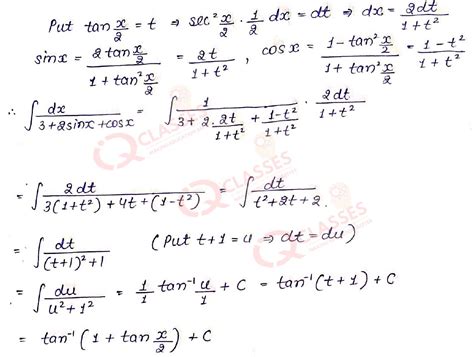 Put tan x/2 = t ⇒ sec² x/2 · 1/2 dx = dt ⇒ dx = 2dt/(1+t²)
sinx = 2 tan x/2 / (1 + tan² x/2) = 2t/(1+t²) , cosx = (1 - tan² x/2)/(1 + tan² x/2) = (1-t²)/(1+t²)
∴ ∫ dx/(3+2sinx+cosx) = ∫ 1/(3 + 2·2t/(1+t²) + (1-t²)/(1+t²)) · 2dt/(1+t²)
= ∫ 2dt/(3(1+t²) + 4t + (1-t²)) = ∫ dt/(t²+2t+2)
= ∫ dt/((t+1)²+1) (Put t+1 = u ⇒ dt = du)
= ∫ du/(u²+1²) = 1/1 tan⁻¹ u/1 + C = tan⁻¹(t+1) + C
= tan⁻¹(1 + tan x/2) + C
IQ CLASSES
IQ CLASSES
IQ CLASSES